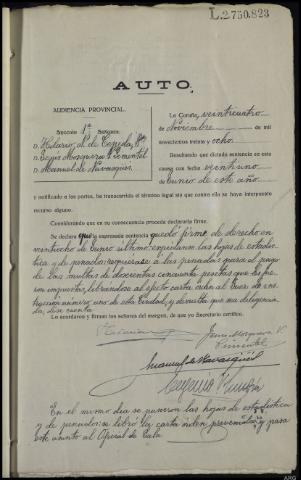 L.2750.823
AUTO.
AUDIENCIA PROVINCIAL.
Sección 1ª Señores.
D. Hilario N. de Cepeda, Pte
D. Jesús Marquina Pimentel
D. Manuel de Navasqües.
La Coruña, veinticuatro
de Noviembre de mil
novecientos treinta y ocho.
Resultando que dictada sentencia en esta
causa con fecha veintiuno
de Junio de este año
y notificada a las partes, ha transcurrido el término legal sin que contra ella se haya interpuesto
recurso alguno.
Considerando que en su consecuencia procede declararla firme.
Se declara que la expresada sentencia quedó firme de derecho en
veintiocho de Junio último: expídanse las hojas de estadística
y de penados: requiérase á los penados para el pago
de las multas de doscientas cincuenta pesetas que les fue
ron impuestas, librándose al efecto carta orden al Juez de ins
trucción número uno de esta Ciudad, y devuelta que sea diligenciada
dése cuenta
Lo acordaron y firman los señores del margen, de que yo Secretario certifico.
Jesús Marquina P.
Pimentel
Manuel de Navasqües
Eugenio
En el mismo dia se pusieron las hojas de estadística
y de penados: se libró la carta orden prevenida y pasa
este asunto al Oficial de Sala
ARG